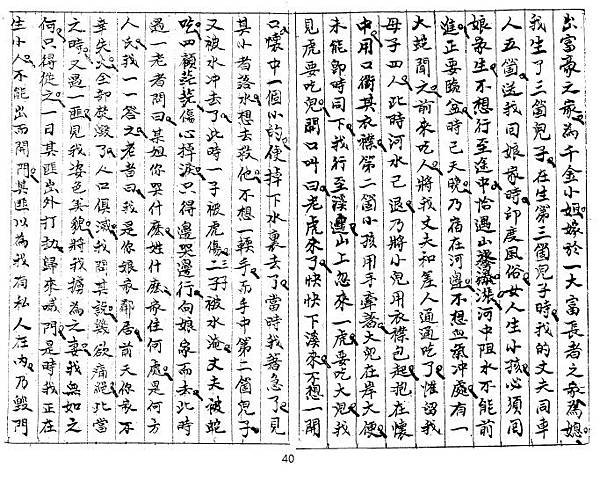 出富豪之家為千金小姐嫁於一大富長者之家為媳
我生了三箇兒子在生第三箇兒子時我的丈夫同車
人五箇送我回娘家時印度風俗女人生小孩必須回
娘家生不想行至途中恰遇山洪河中阻水不能前
進正要臨盆時已天晚乃宿在河邊不想血氣冲處有一
大蛇聞之前來吃人將我丈夫和差人通通吃了惟留我
母子四人此時河水已退乃將小兒用衣襟包起抱在懷
中用口銜其衣襟第二箇小孩用手牽著大兒在岸大便
未能卽時同下我行至溪邊山上忽來一虎要吃大兒我
見虎要吃兒開口叫曰老虎來了快快下溪來不想一開
口懷中一個小的便掉下水裏去了當時我著急了見
其小者落水想去救他不想一鞍手而手中第二箇兒子
又被水冲去了此時一子被虎傷二子三子被水淹丈夫被蛇
吃四顧茫茫傷心掉淚只得邊哭邊行向娘家而去此時
遇一老者問曰某姐你哭什麼姓什麼家住何處是何方
人氏我一一答之老者曰我是你娘家鄰居前天你家不
幸失火全部燒燬了人口俱滅我聞其說幾欲痛絕此當
之時又遇一匪見我姿色美貌將我擄為之妻我無如之
何只得從之一日其匪出外打劫歸來喊門是時我正在
生小人不能出而開門其匪以為我有私人在內乃毀門
40